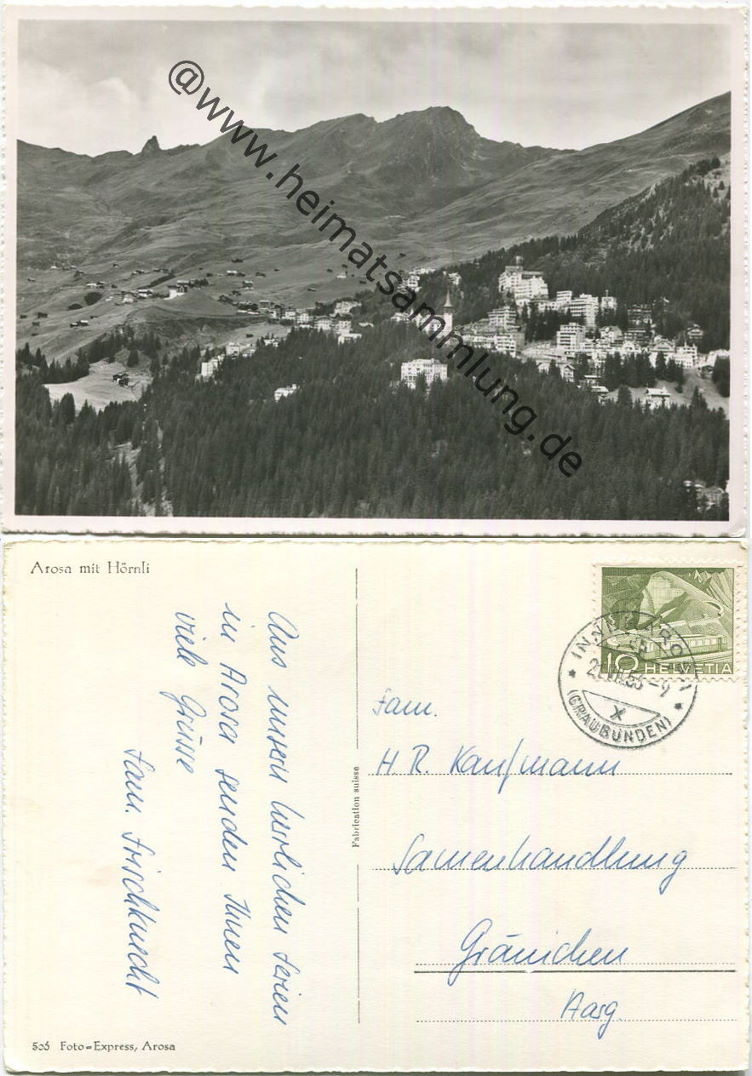 @www.heimatsammlung.de
Arosa mit Hörnli
Aus unsern herrlichen Ferien
in Arosa senden Ihnen
viele Grüsse
Fam. Frischknecht
505 Foto=Express, Arosa
Fabrication suisse
10 HELVETIA
INNERAROSA
(GRAUBÜNDEN)
X
Fam.
H R. Kaufmann
Samenhandlung
Gränichen
Aarg